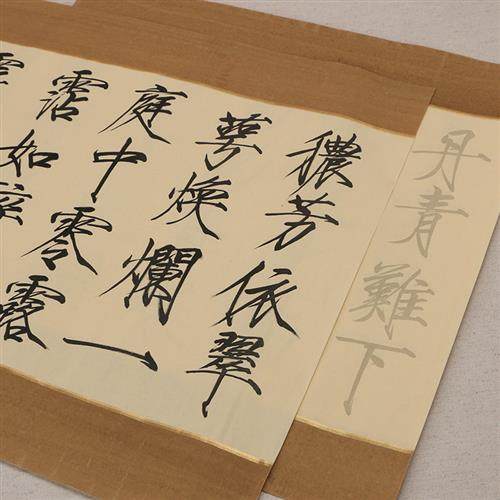 穠芳依翠
萼煥爛一
庭中零露
霑如
丹青難下